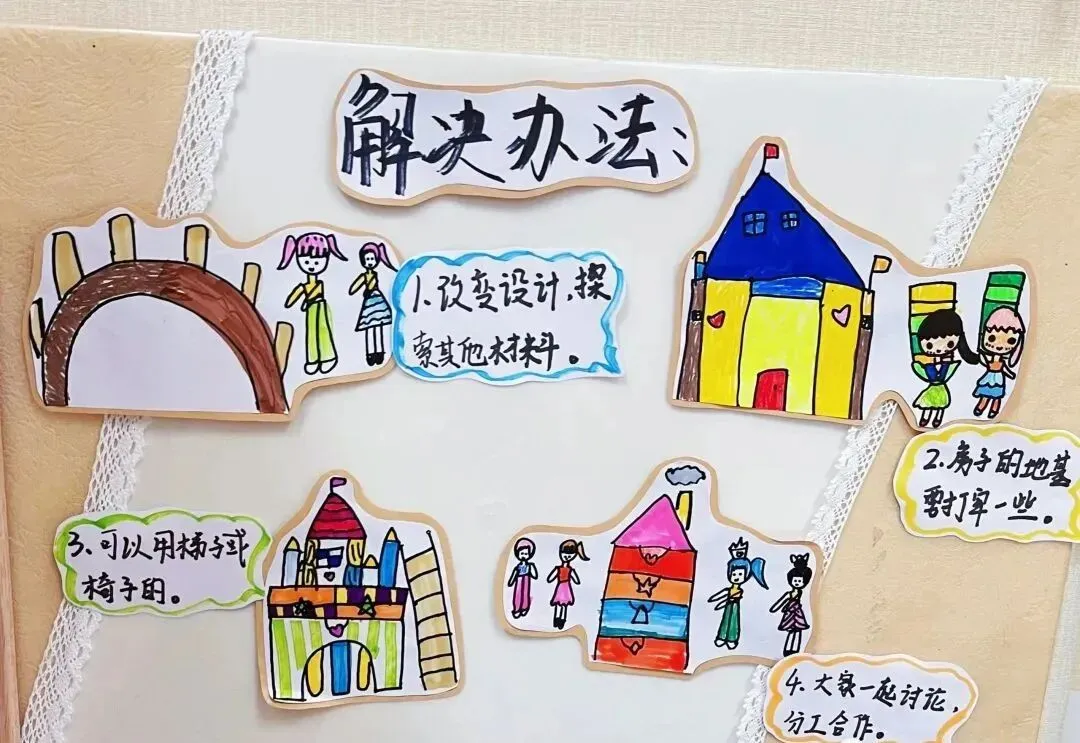 解决办法:
1.改变设计,探
索其他材料。
2.房子的地基
要打牢一些。
3、可以用梯子或
椅子的。
4.大家一起讨论,
分工合作。